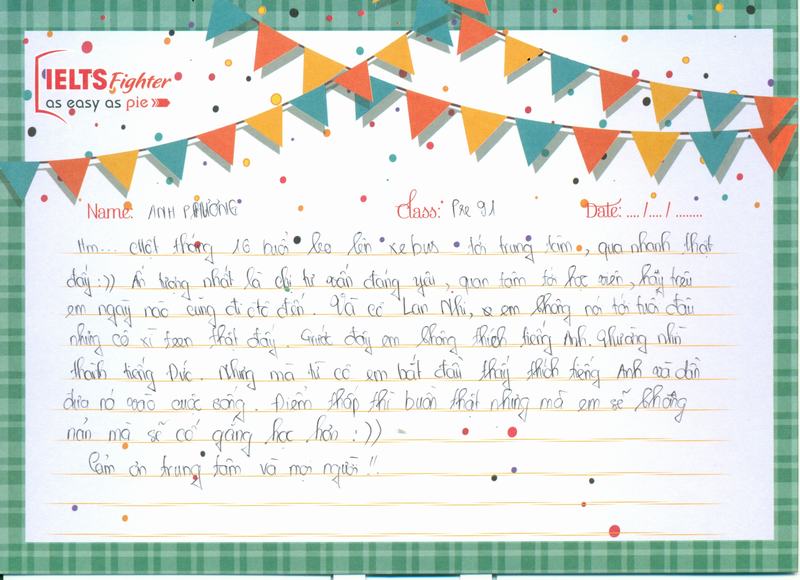 IELTS Fighter
as easy as pie
Name: ANH PHƯƠNG Class: Pre 91 Date: .... /.... / ........
Hm... Một tháng 16 buổi leo lên xe bus tới trung tâm, qua nhanh thật
đấy :)) Ấn tượng nhất là chị tư vấn đáng yêu, quan tâm tới học viên, hãy trêu
em ngày nào cũng đi ctc đến. Và cô Lan Nhi, em không nói tới tuổi đâu
nhưng cô xì teen thật đấy. Trước đây em không thích tiếng Anh. Thường nhìn
thành tiếng Đức. Nhưng mà từ cô em bắt đầu thấy thích tiếng Anh và dần
đưa nó vào cuộc sống. Điểm thấp thì buồn thật nhưng mà em sẽ không
nản mà sẽ cố gắng học hơn :))
Cảm ơn trung tâm và mọi người!!